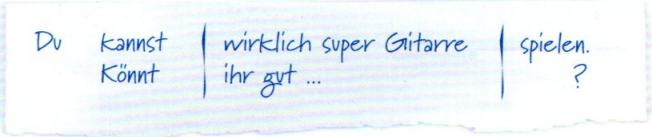 Du kannst | wirklich super Gitarre | spielen.
Könnt | ihr gut ... | ?